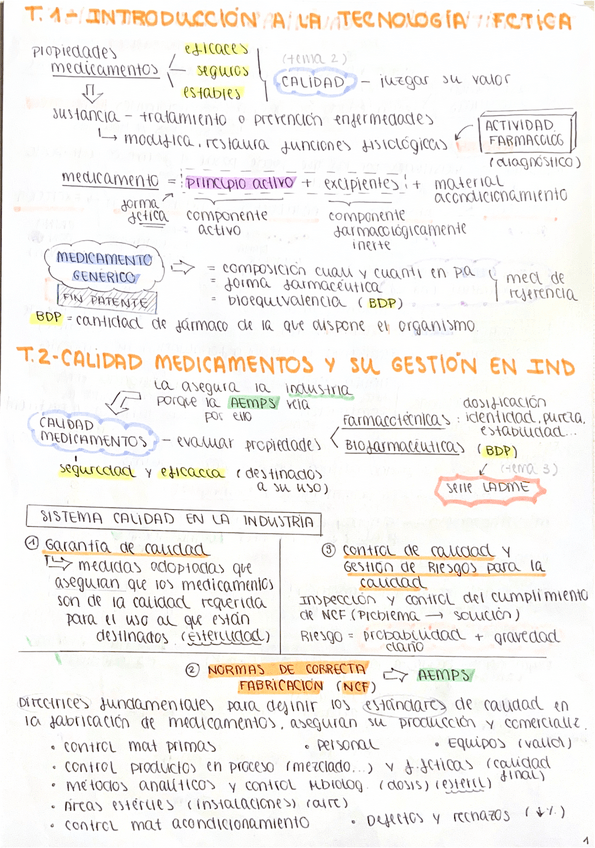 T.1- INTRODUCCIÓN A LA TECNOLOGÍA FCTICA
propiedades medicamentos
eficaces
seguros
estables
(tema 2)
CALIDAD - juzgar su valor
sustancia - tratamiento o prevención enfermedades
↳ modifica, restaura funciones fisiológicas
ACTIVIDAD FARMACOLOG
(diagnóstico)
medicamento = principio activo + excipientes + material acondicionamiento
forma fctica
componente activo
componente farmacológicamente inerte
MEDICAMENTO GENERICO
FIN PATENTE
= composición cuali y cuanti en pa
= forma farmacéutica
= bioequivalencia (BDP)
med de referencia
BDP = cantidad de fármaco de la que dispone el organismo.
T.2-CALIDAD MEDICAMENTOS Y SU GESTIÓN EN IND
La asegura la industria
porque la AEMPS vela
por ello
CALIDAD MEDICAMENTOS - evaluar propiedades
dosificación
Farmacotécnicas: identidad, pureza,
estabilidad...
Biofarmacéuticas (BDP)
(tema 3)
serie LADME
seguridad y eficacia (destinados
a su uso)
SISTEMA CALIDAD EN LA INDUSTRIA
① Garantía de calidad
↳ medidas adoptadas que
aseguran que los medicamentos
son de la calidad requerida
para el uso al que están
destinados (esterilidad)
③ Control de calidad y
Gestión de Riesgos para la
calidad
Inspección y control del cumplimiento
de NCF (Problema → solución)
Riesgo = probabilidad + gravedad
daño
② NORMAS DE CORRECTA ⇨ AEMPS
FABRICACIÓN (NCF)
Directrices fundamentales para definir los estándares de calidad en
la fabricación de medicamentos, aseguran su producción y comercializ.
• control mat primas • Personal • Equipos (valid)
• control productos en proceso (mezclado...) y f.fcticas (calidad
final)
• métodos analíticos y control μbiolog. (dosis) (esteril)
• Áreas estériles (instalaciones) (aire)
• control mat acondicionamiento • Defectos y rechazos (↓%)
1